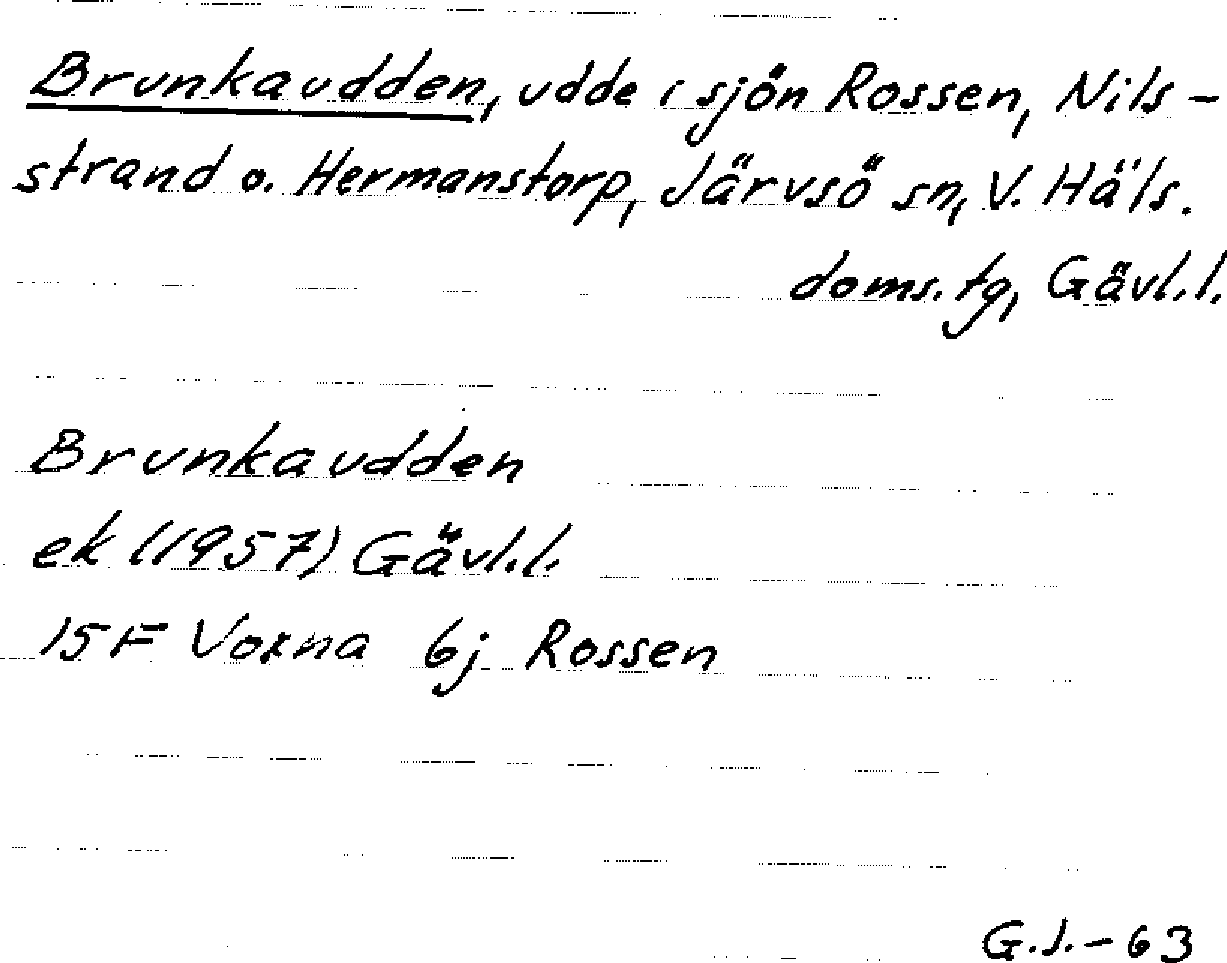 Brunkaudden, udde i sjön Rossen, Nils-
strand o. Hermanstorp, Järvsö sn, V. Häls.
doms. tg, Gävl.l.
Brunkaudden
ek (1957) Gävl.l.
15F Voxna 6j Rossen
G.J.-63